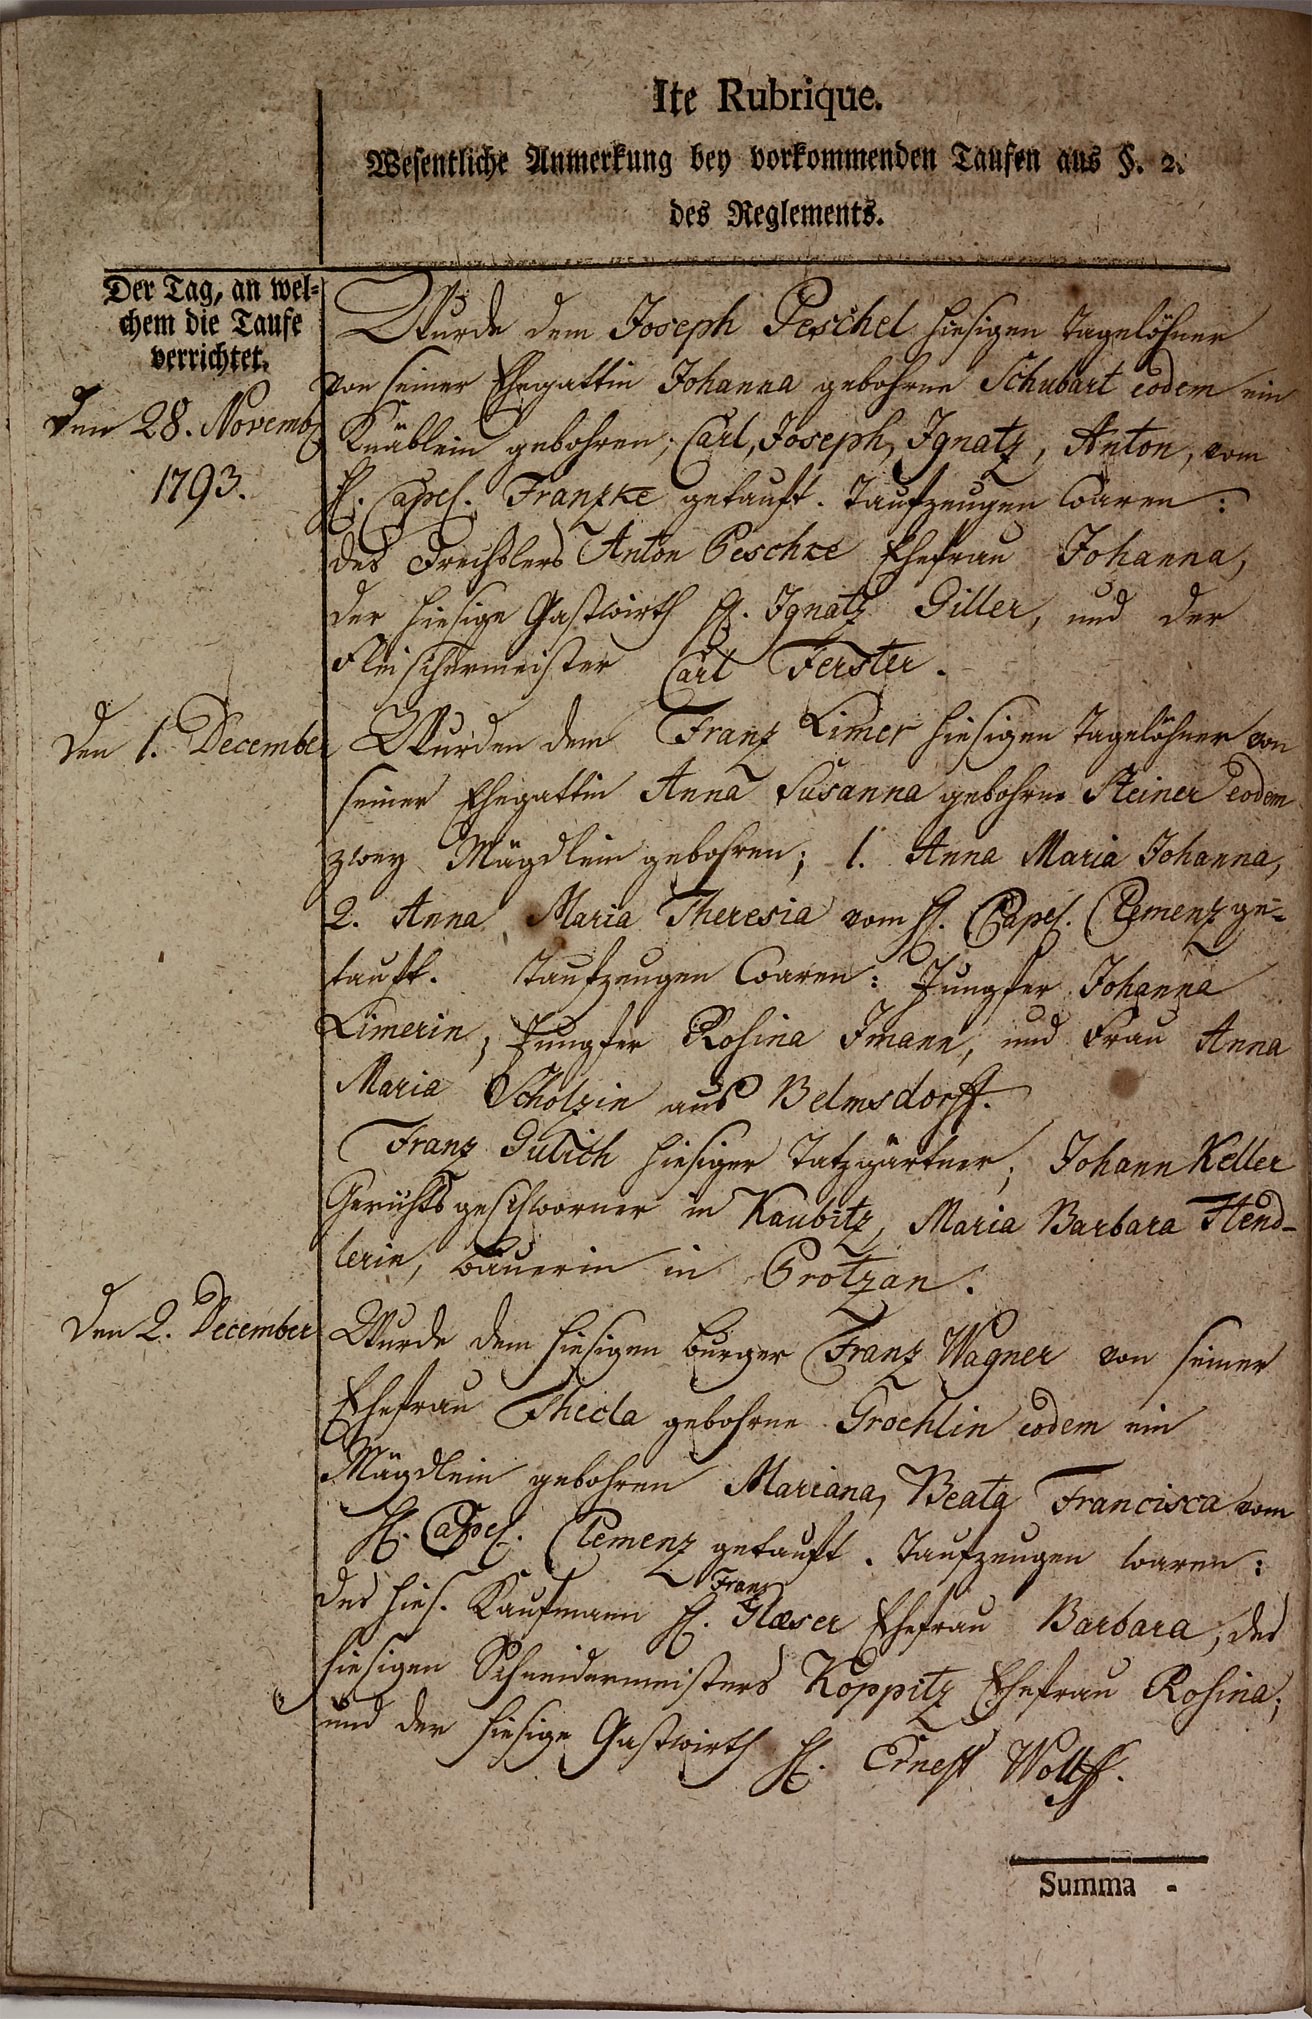 Ite Rubrique.
Wesentliche Anmerkung bey vorkommenden Taufen aus §. 2.
des Reglements.
Der Tag, an wel-
chem die Taufe
verrichtet.
Den 28. Novemb
1793.
Wurde dem Joseph Peschel hiesigen Tagelöhner
von seiner Ehegattin Johanna gebohrne Schubart eodem ein
Knäblein gebohren; Carl, Joseph, Ignatz, Anton, vom
H. Capel. Franzke getauft. Taufzeugen waren:
des Drechslers Anton Peschke Ehefrau Johanna,
der hiesige Gastwirth H. Ignatz Giller, und der
Fleischermeister Carl Ferster.
Den 1. December
Wurden dem Franz Limer hiesigen Tagelöhner von
seiner Ehegattin Anna Susanna gebohrne Steiner eodem
zwey Mägdlein gebohren; 1. Anna Maria Johanna,
2. Anna Maria Theresia vom H. Capel. Clemenz ge-
tauft. Taufzeugen waren: Jungfer Johanna
Limerin, Jungfer Rosina Imann, und Frau Anna
Maria Scholzin aus Belmsdorff.
Franz Gulich hiesiger; Johann Keller
Gerichtsgeschworner in Kaubitz, Maria Barbara Hend-
lerin, Bäuerin in Protzan.
Den 2. December
Wurde dem hiesigen Burger Franz Wagner von seiner
Ehefrau Thecla gebohrne Grochlin eodem ein
Mägdlein gebohren Mariana, Beata Francisca vom
H. Capel. Clemenz getauft. Taufzeugen waren:
Franz
des hies. Kaufmann H. Glæser Ehefrau Barbara, des
hiesigen Schneidermeisters Koppitz Ehefrau Rosina;
und der hiesige Gastwirth H. Ernest Wolff.
Summa -